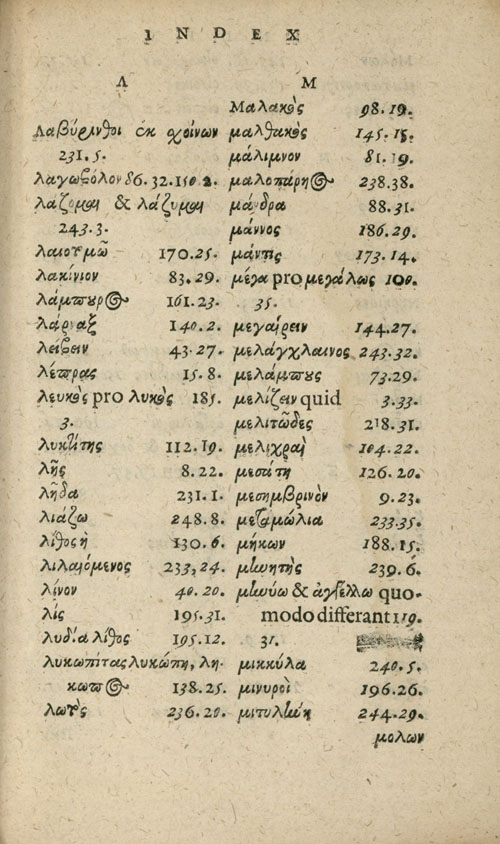 INDEX
Λ
Λαβύρινθοι ἐκ σχοίνων
231. 5.
λαγωβόλον 86. 32. 150. 2.
λάζομαι & λάζυμαι
243. 3.
170. 25.
λακίνιον 83. 29.
λάμπουρος 161. 23.
λάρναξ 140. 2.
λείβειν 43. 27.
λέπρας 15. 8.
λευκὸς pro λυκὸς 185.
3.
λυκτίτης 112. 19.
λῆς 8. 22.
λῆδα 231. 1.
λιάζω 248. 8.
λίθος ἡ 130. 6.
λιλαιόμενος 233, 24.
λίνον 40. 20.
λίς 195. 31.
λυδία λίθος 195. 12.
λυκωπίτας λυκώπη, λη.
κωπος 138. 25.
λωτὸς 236. 20.
Μ
Μαλακὸς 98. 19.
μαλθακὸς 145. 15.
μάλιμνον 81. 19.
μαλοπάρηος 238. 38.
μάνδρα 88. 31.
μάννος 186. 29.
μάντις 173. 14.
μέγα pro μεγάλως 100.
35.
μεγαίρειν 144. 27.
μελάγχλαινος 243. 32.
μελάμπους 73. 29.
μελίζειν quid 3. 33.
μελιτῶδες 218. 31.
μελιχραὶ 104. 22.
μεσάτη 126. 20.
μεσημβρινὸν 9. 23.
μεταμώλια 233. 35.
μήκων 188. 15.
μηνυτὴς 239. 6.
μηνύω & ἀγγέλλω quo-
modo differant 119.
31.
μικκύλα 240. 5.
μινυροὶ 196. 26.
μιτυλήνη 244. 29.
μολων